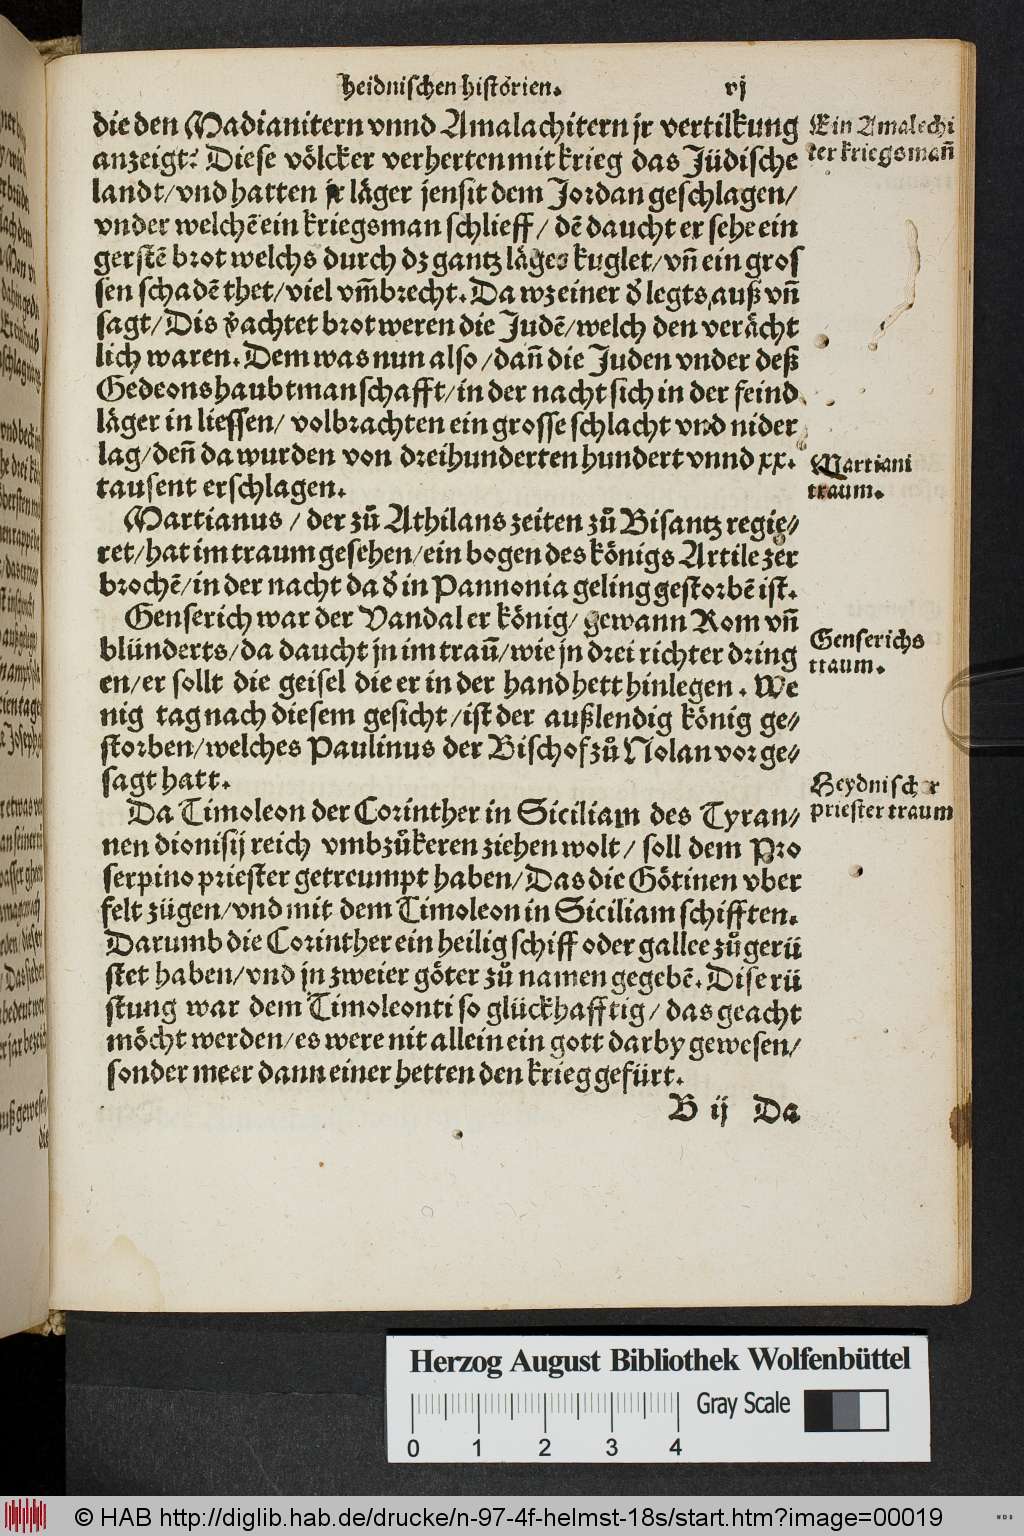 heidnischen historien. vj
die den Madianitern vnnd Amalachitern jr vertilkung
anzeigt? Diese völcker verherten mit krieg das Jüdische
landt/vnd hatten jr läger jensit dem Jordan geschlagen/
vnder welchē ein kriegsman schlieff/ dē daucht er sehe ein
gerstē brot welchs durch dz gantz läger kuglet/vñ ein gros
sen schadē thet/viel vm̄brecht. Da wz einer d̕ legts auß vñ
sagt/ Dis v̕achtet brot weren die Judē/welch den verächt
lich waren. Dem was nun also/dañ die Juden vnder deß
Gedeons haubtmanschafft/in der nacht sich in der feind
läger in liessen/ volbrachten ein grosse schlacht vnd nider
lag/deñ da wurden von dreihunderten hundert vnnd xx.
tausent erschlagen.
Martianus / der zů Athilans zeiten zů Bisantz regie⸗
ret/hat im traum gesehen/ein bogen des königs Artile zer
brochē/in der nacht da d̕ in Pannonia geling gestorbē ist.
Genserich war der Vandaler könig/ gewann Rom vñ
blünderts/da daucht jn im traū/wie jn drei richter dring
en/er sollt die geisel die er in der hand hett hinlegen. We
nig tag nach diesem gesicht/ist der außlendig könig ge⸗
storben/welches Paulinus der Bischof zů Nolan vor ge⸗
sagt hatt.
Da Timoleon der Corinther in Siciliam des Tyran⸗
nen dionisij reich vmbzůkeren ziehen wolt/ soll dem Pro
serpino priester getreumpt haben/Das die Götinen vber
felt zügen/vnd mit dem Timoleon in Siciliam schifften.
Darumb die Corinther ein heilig schiff oder gallee zů gerü
stet haben/vnd jn zweier göter zů namen gegebē. Dise rü
stung war dem Timoleonti so glückhafftig/ das geacht
möcht werden/es were nit allein ein gott darby gewesen/
sonder meer dann einer hetten den krieg gefürt.
B ij Da
Ein Amalechi
ter kriegsmañ
Martiani
traum.
Genserichs
traum.
Heydnischer
priester traum
Herzog August Bibliothek Wolfenbüttel
Gray Scale
0 1 2 3 4
© HAB http://diglib.hab.de/drucke/n-97-4f-helmst-18s/start.htm?image=00019